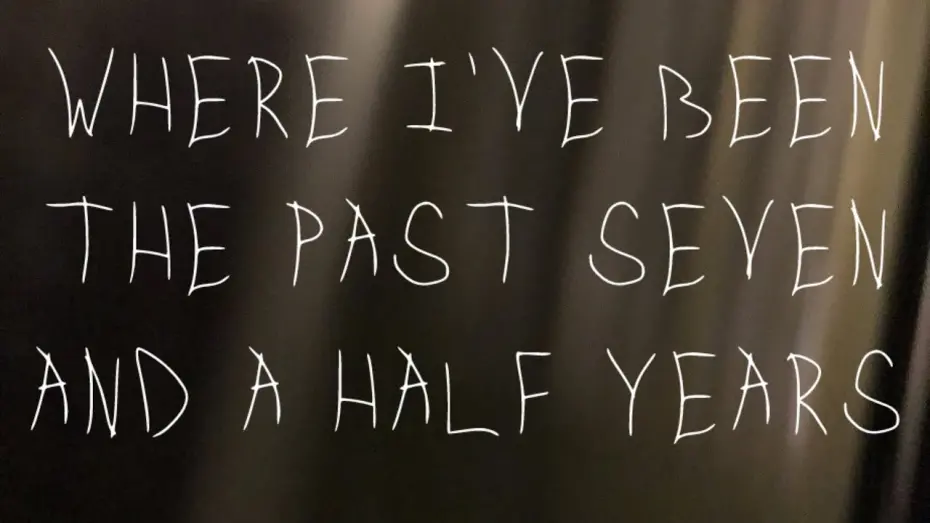 WHERE I'VE BEEN
THE PAST SEVEN
AND A HALF YEARS